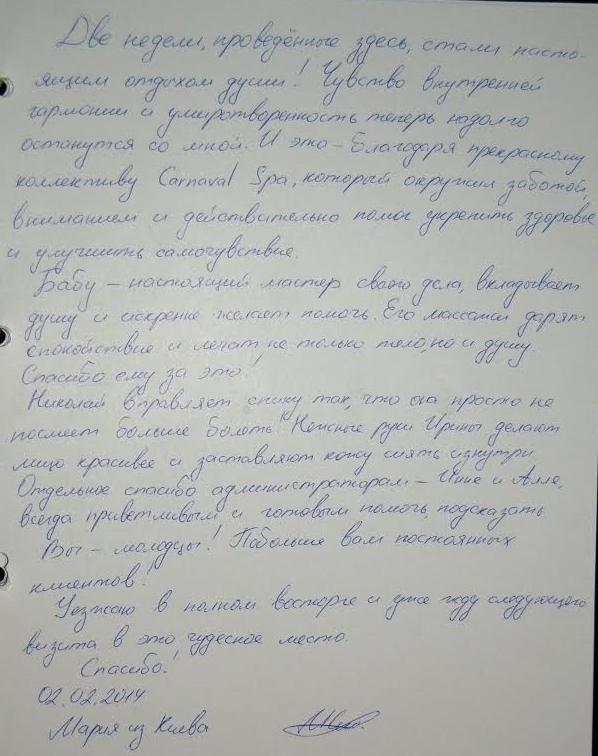 Две недели, проведённые здесь, стали насто-
ящим отдыхом души! Чувство внутренней
гармонии и умиротворенность теперь надолго
останутся со мной. И это - благодаря прекрасному
коллективу Carnaval Spa, который окружил заботой,
вниманием и действительно помог укрепить здоровье
и улучшить самочувствие.
Бабу - настоящий мастер своего дела, вкладывает
душу и искренне желает помочь. Его массажи дарят
спокойствие и лечат не только тело, но и душу.
Спасибо ему за это!
Николай вправляет спину так, что она просто не
посмеет больше болеть! Нежные руки Ирины делают
лицо красивее и заставляют кожу сиять изнутри.
Отдельное спасибо администраторам - Инне и Алле,
всегда приветливым и готовым помочь, подсказать
Вы - молодцы! Побольше вам постоянных
клиентов!
Уезжаю в полном восторге и уже жду следующего
визита в это чудесное место.
Спасибо!
02.02.2014
Мария из Киева